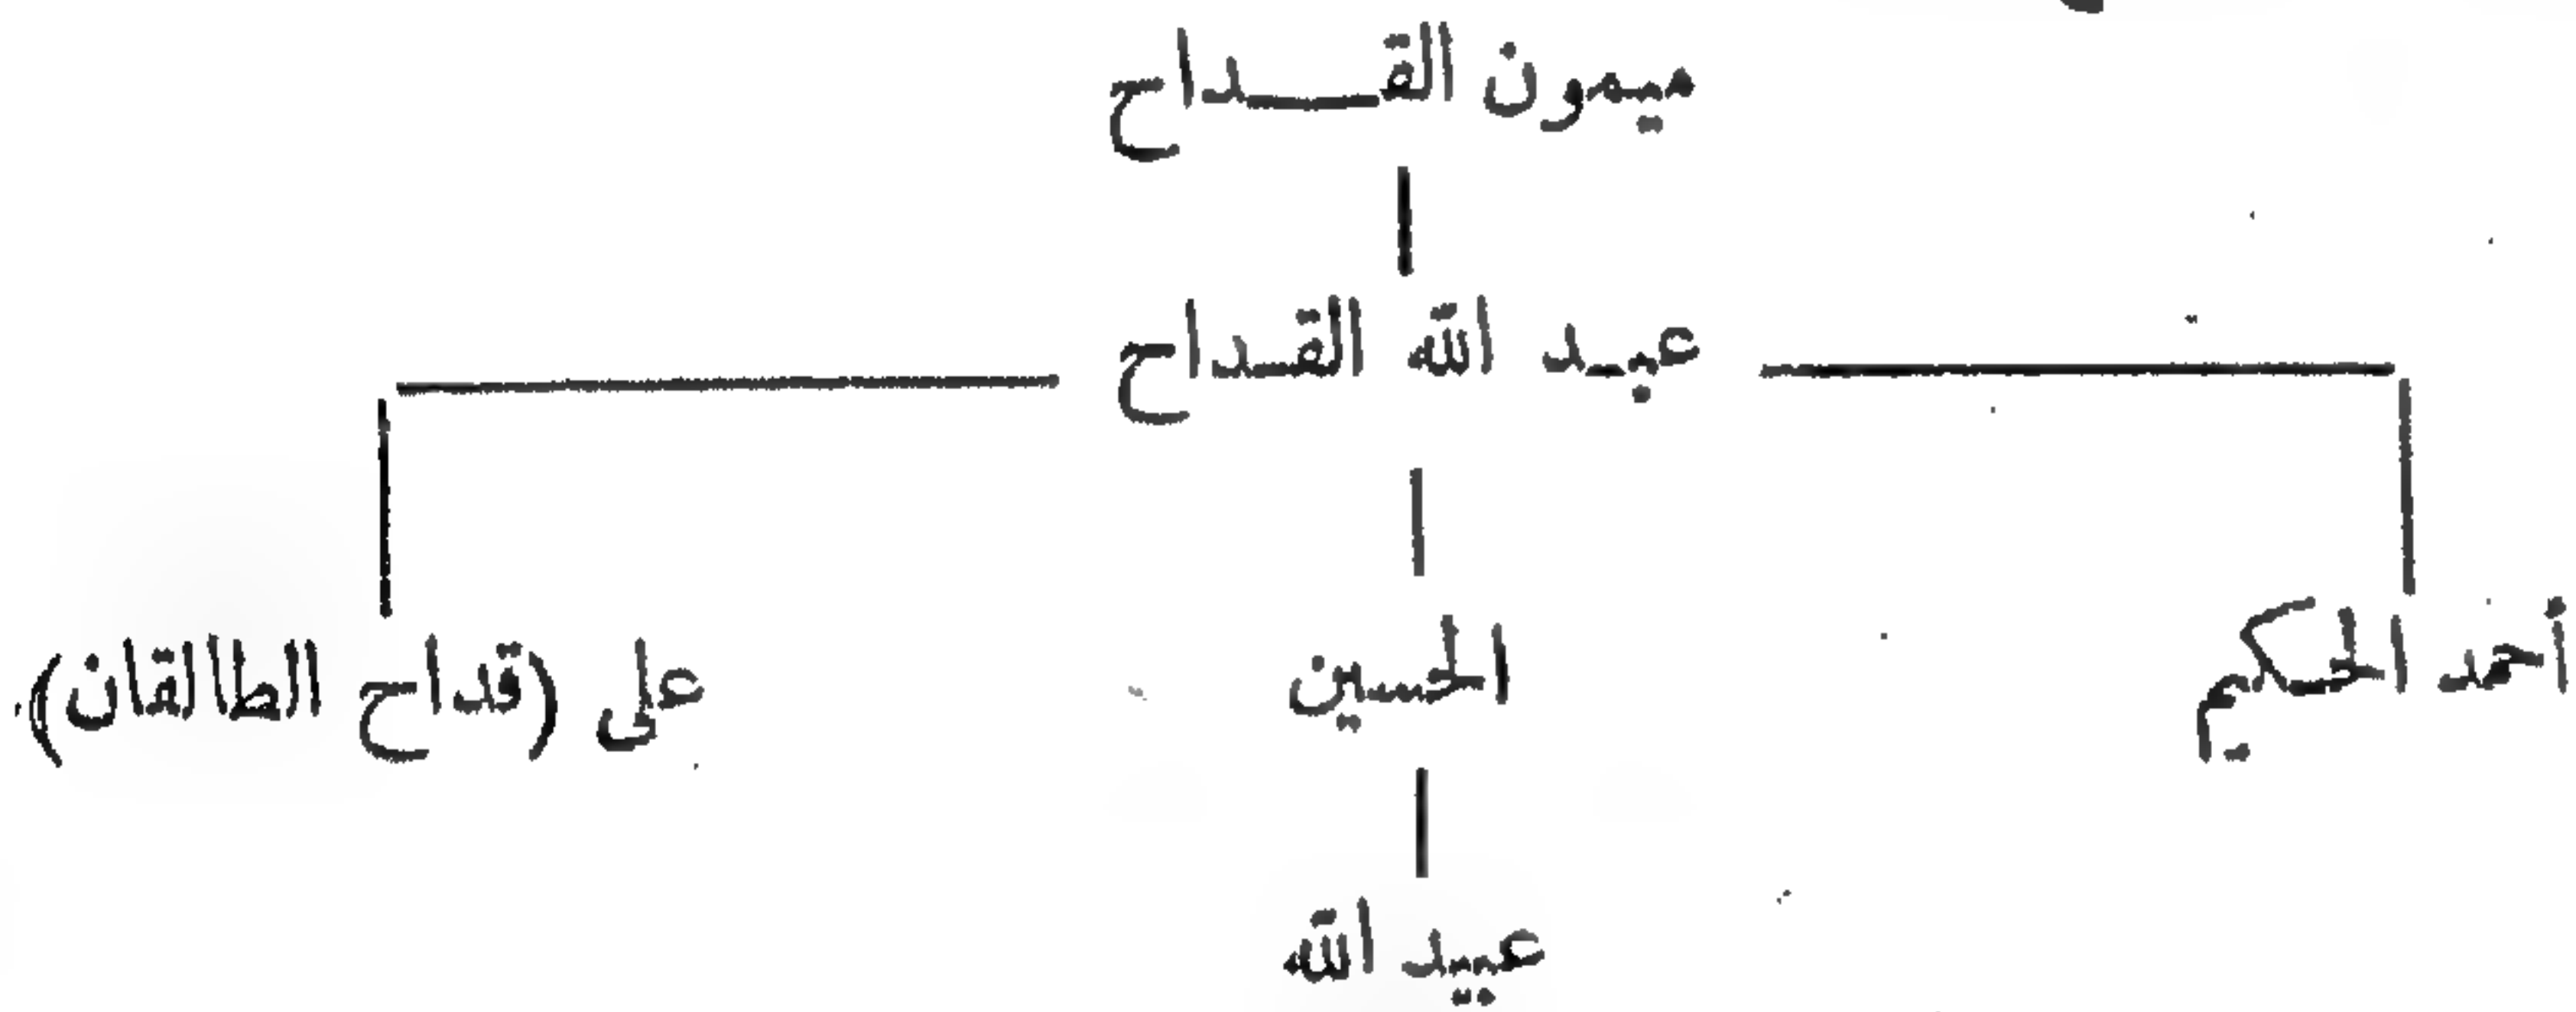 ميمون القداح
عبد الله القداح
أحمد الحكيم الحسين على (قداح الطالقان).
عبيد الله